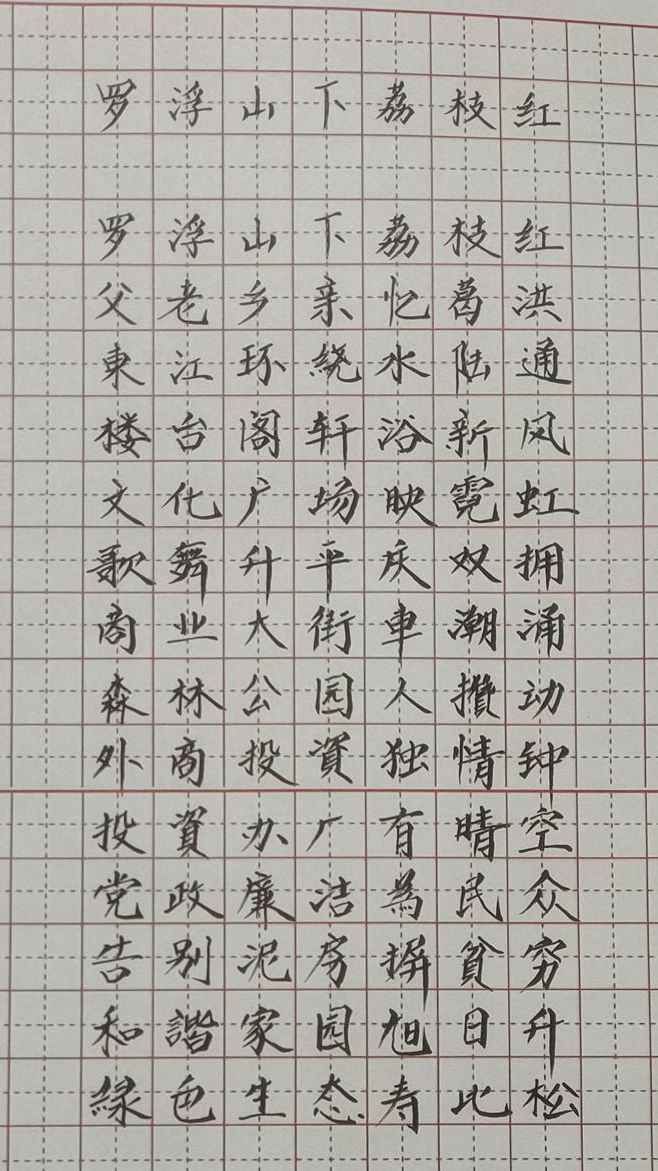 罗浮山下荔枝红
罗浮山下荔枝红
父老乡亲忆葛洪
東江环绕水陆通
楼台阁轩浴新风
文化广场映霓虹
歌舞升平庆双拥
商业大街車潮涌
森林公园人攒动
外商投資独情钟
投資办厂有晴空
党政廉洁為民众
告别泥房摒貧穷
和諧家园旭日升
緑色生态寿比松